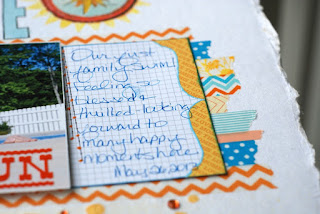 E
Our first
family swim!
Feeling so
blessed &
thrilled-looking
forward to
many happy
moments here.
May 26 2012
UN